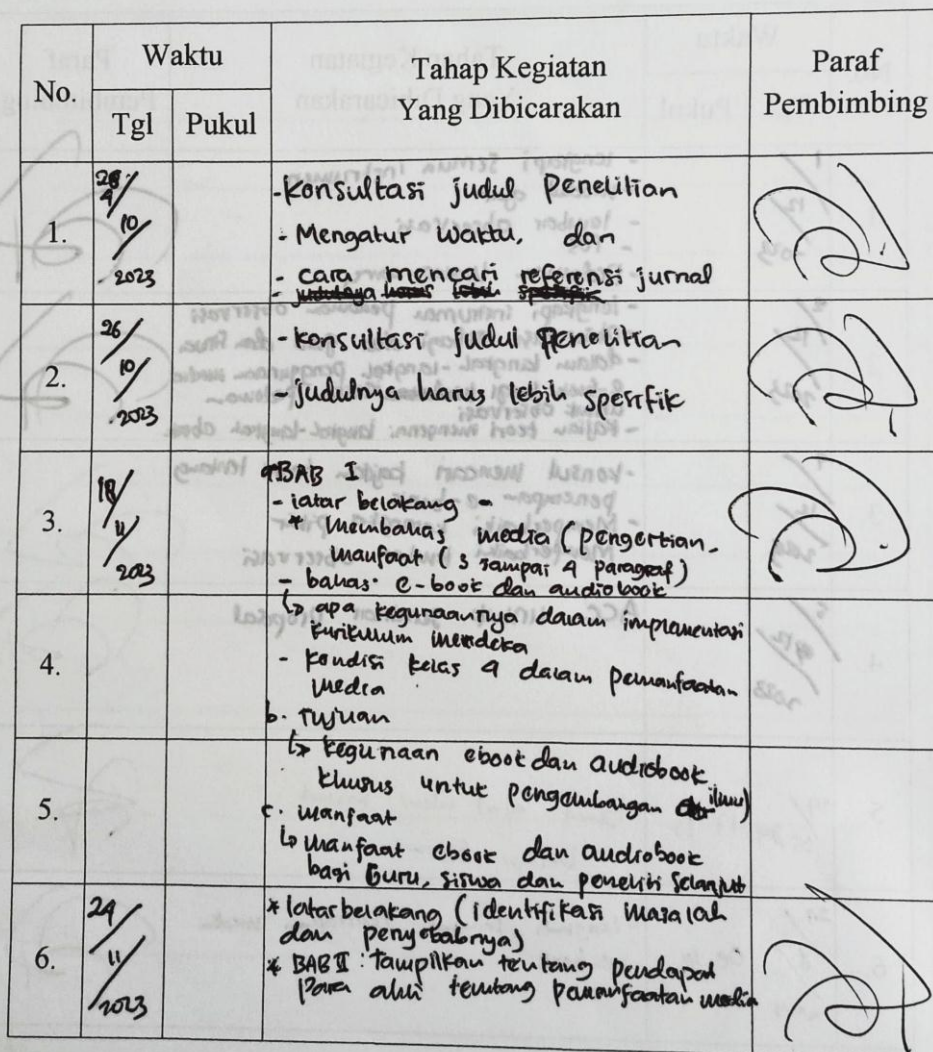 No.
Waktu
Tgl
Pukul
Tahap Kegiatan
Yang Dibicarakan
Paraf
Pembimbing
1.
10/2023
- Konsultasi judul Penelitian
- Mengatur waktu, dan
- cara mencari referensi jurnal
- judulnya harus lebih spesifik
2.
26/10/2023
- konsultasi judul Penelitian
- judulnya harus lebih spesifik
3.
18/11/2023
BAB I
- latar belakang -
* Membahas media (pengertian,
manfaat (3 sampai 4 paragraf)
- bahas. e-book dan audiobook
↳ apa kegunaannya dalam implementasi
kurikulum merdeka
4.
- Kondisi kelas 4 dalam pemanfaatan
media
b. Tujuan
↳ kegunaan ebook dan audiobook
khusus untuk pengembangan ilmu)
5.
c. manfaat
↳ Manfaat ebook dan audiobook
bagi Guru, siswa dan peneliti selanjut
6.
24/11/2023
* latar belakang (identifikasi masalah
dan penyebabnya)
* BAB II : tampilkan tentang pendapat
para ahli tentang pemanfaatan media